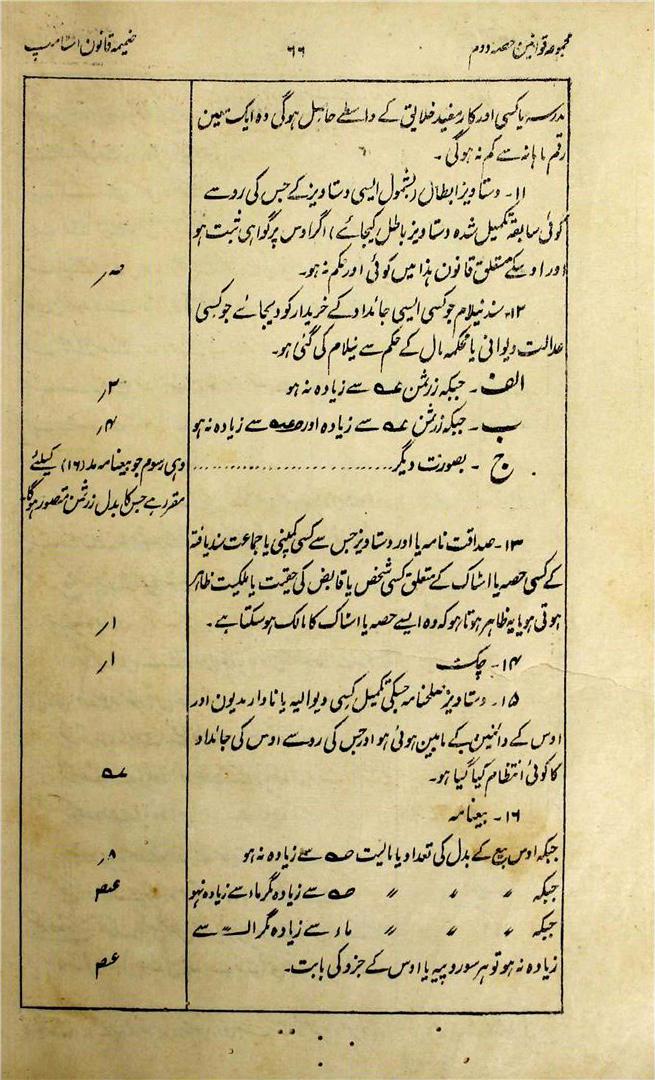 مجموعہ قوانین حصہ دوم ۶۶ ضمیمہ قانون اسٹامپ
مدرسہ یا کسی اور کار مفید خلایق کے واسطے حاصل ہوگی وہ ایک تین
رقم ماہانہ سے کم نہ ہوگی ۔
۱۱۔ دستاویز ابطال (بشمول ایسی دستاویز کے جس کی رو سے
کوئی سابقہ تکمیل شدہ دستاویز باطل کیجائے) اگر اوس پر گواہی ثبت ہو
اور اوسکے متعلق قانون ہذا میں کوئی اور حکم نہ ہو۔
۱۲۔ سند نیلام جو کسی ایسی جائداد کے خریدار کو دیجائے جو کسی
عدالت دیوانی یا محکمہ مال کے حکم سے نیلام کی گئی ہو۔
الف ۔ جبکہ زرثمن سے زیادہ نہ ہو ۲ر
ب ۔ جبکہ زرثمن سے زیادہ اور سے زیادہ نہ ہو ۴ر
ج ۔ بصورت دیگر .......................... وہی رسوم جو بیعنامہ مد (۱۶) کیلئے
مقرر ہے جس کا بدل زرثمن متصور ہوگا۔
۱۳۔ صداقت نامہ یا اور دستاویز جس سے کسی کمپنی یا جماعت سند یافتہ
کے کسی حصہ یا اسٹاک کے متعلق کسی شخص یا قابض کی حقیت یا ملکیت ظاہر
ہوتی ہو یا یہ ظاہر ہوتا ہو کہ وہ ایسے حصہ یا اسٹاک کا مالک ہو سکتا ہے۔ ۱ر
۱۴۔ چک ۱ر
۱۵۔ دستاویز صلحنامہ جسکی تکمیل کسی دیوالیہ یا نادار مدیون اور
اوس کے دائنین کے مابین ہوئی ہو اور جس کی رو سے اوس کی جائداد
کا کوئی انتظام کیا گیا ہو۔
۱۶۔ بیعنامہ
جبکہ اوس بیع کے بدل کی تعداد یا مالیت سے زیادہ نہ ہو ۸ر
جبکہ 〃 〃 〃 سے زیادہ مگر ماء سے زیادہ نہو
جبکہ 〃 〃 〃 ماء سے زیادہ مگر سے
زیادہ نہ ہو تو ہر سو روپیہ یا اوس کے جزو کی بابت۔